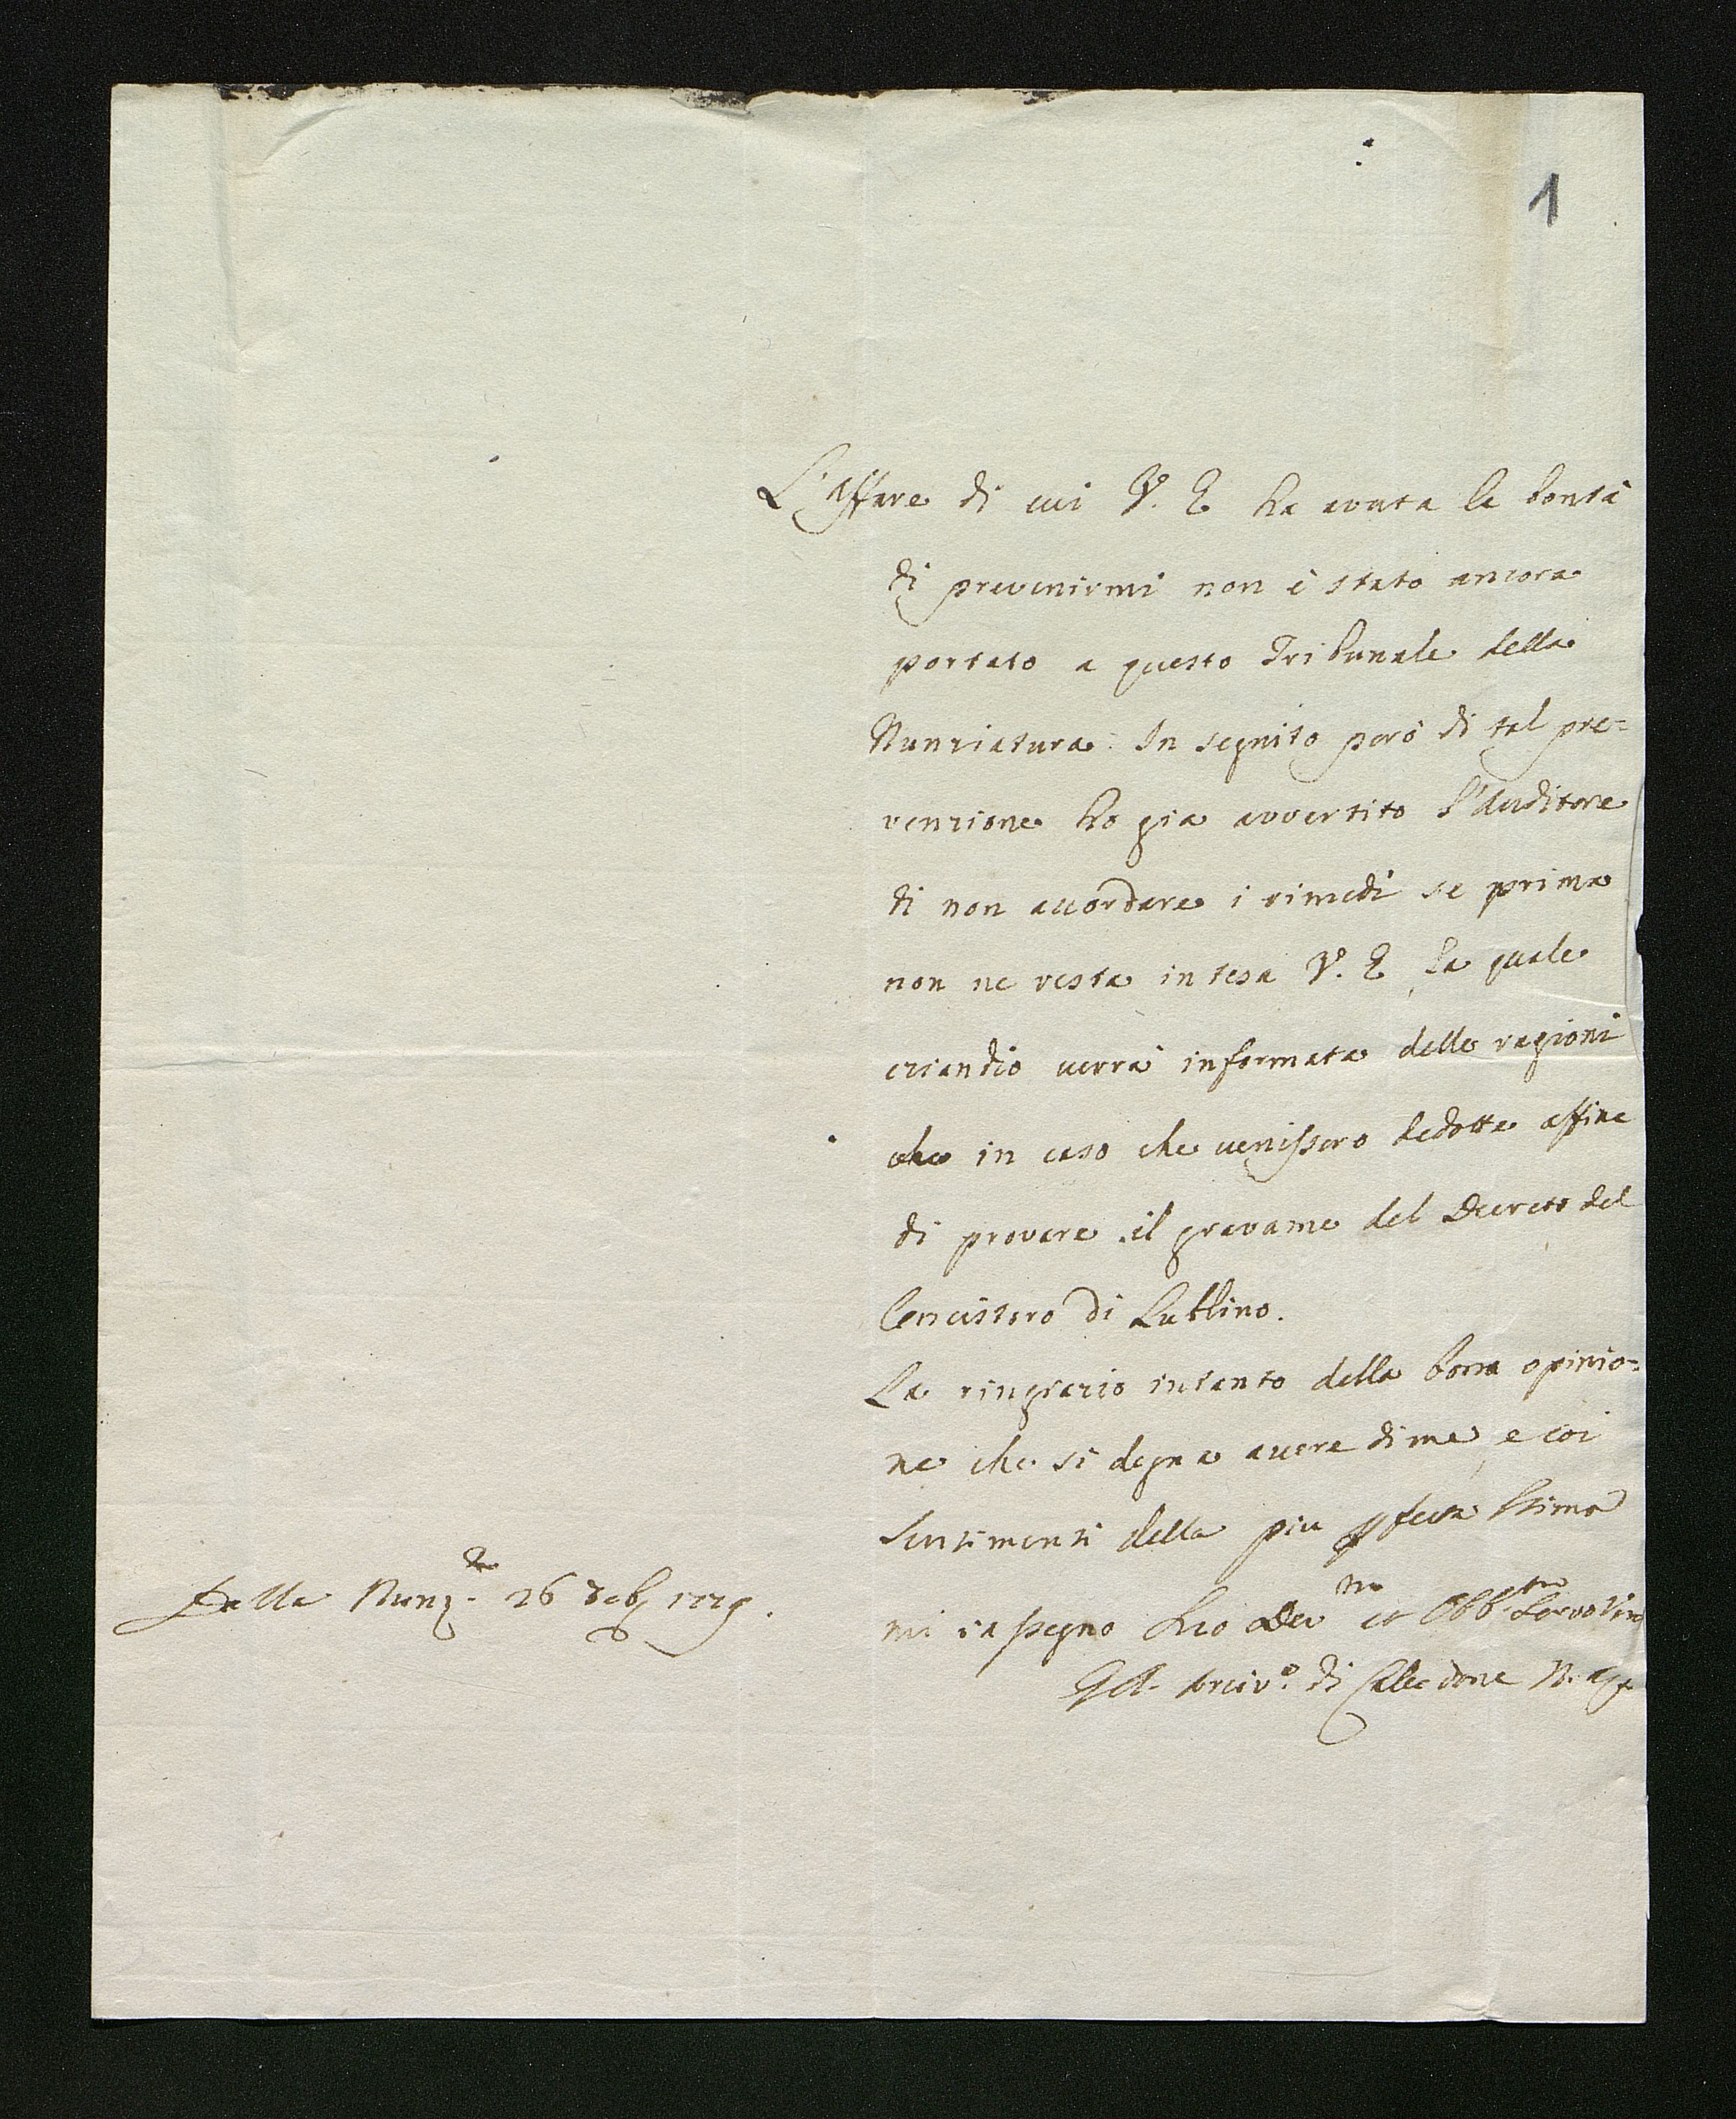 1
L'affare di cui V. E. ha avuta la bontà
di prevenirmi non è stato ancora
portato a questo Tribunale della
Nunziatura. In seguito però di tal pre=
venzione ho gia avvertito l'Auditore
di non accordare i rimedi se prima
non ne resta intesa V. E., la quale
eziandio verrà informata delle ragioni
che in caso che venissero dedotte affine
di provare il gravame del Decreto del
Concistoro di Lublino.
La ringrazio intanto della bona opinio=
ne che si degna avere di me, e coi
sentimenti della piu pfetta stima
mi rassegno Suo Dev.mo et Obb.mo Servo Vero
Arciv.o di Calcedone N. Ap
Dalla Nunz.ra 26